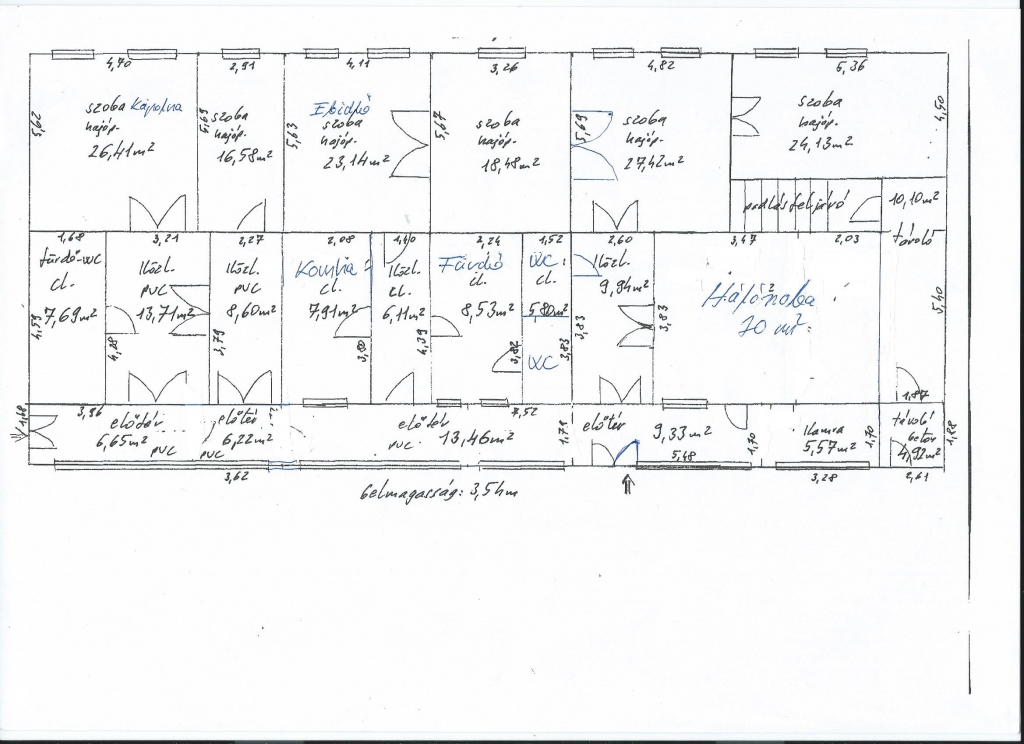 4,70
2,91
4,11
3,26
4,82
5,36
szoba Kápolna
hajóp.
26,41m²
5,62
szoba
hajóp.
16,58m²
5,69
Ebédlő
szoba
hajóp.
23,14m²
5,63
szoba
hajóp.
18,48m²
5,67
szoba
hajóp.
27,42m²
5,69
szoba
hajóp.
24,13m²
4,50
padlásfeljáró
10,10m²
tároló
1,68
3,21
2,27
2,08
1,40
2,24
1,52
2,60
3,47
2,03
fürdő-WC
cl.
7,69m²
4,59
Közl.
PVC
13,71m²
4,28
Közl.
PVC
8,60m²
3,79
Konyha
cl.
7,91m²
3,80
Közl.
cl.
6,11m²
4,39
Fürdő
cl.
8,53m²
3,82
WC
cl.
5,80m²
WC
3,83
Közl.
9,94m²
3,83
3,83
Hálószoba
20 m²
5,40
1,87
1,68
3,96
előtér
6,65m²
PVC
előtér
6,22m²
PVC
előtér
PVC
13,46m²
7,52
1,79
előtér
9,33m²
5,48
1,70
Kamra
5,57m²
1,70
tároló
beton
4,92m²
1,88
3,62
3,28
2,61
belmagasság: 3,54m